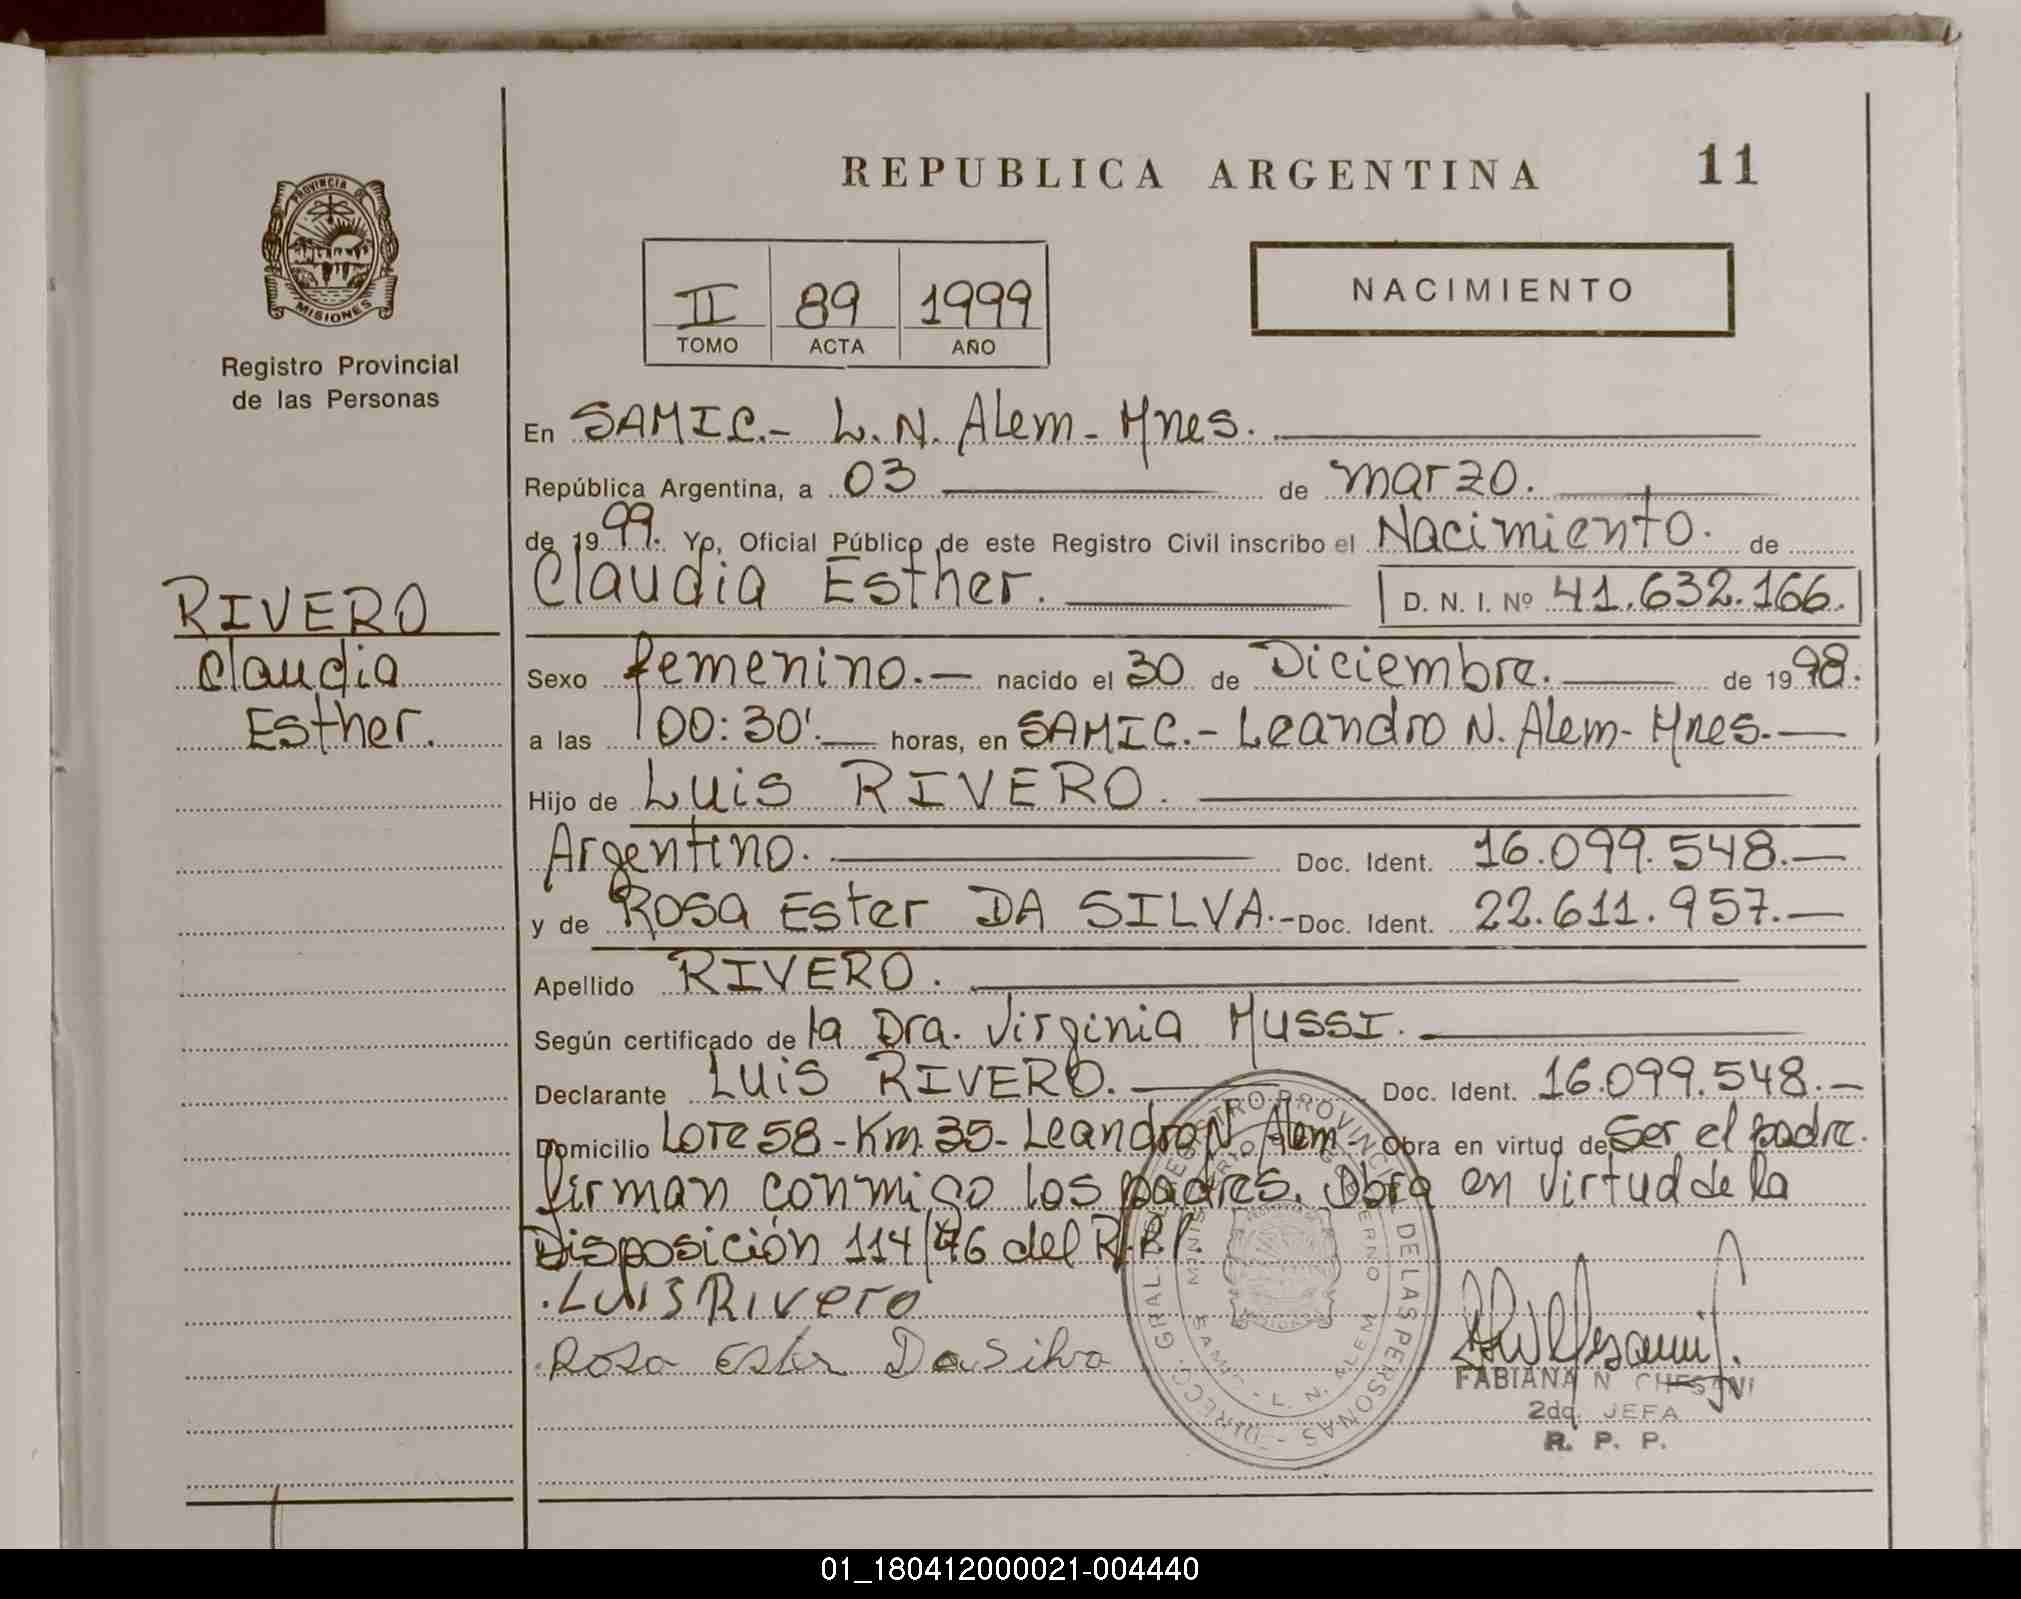 REPUBLICA ARGENTINA 11
PROVINCIA DE
MISIONES
Registro Provincial
de las Personas
II 89 1999
TOMO ACTA AÑO
NACIMIENTO
RIVERO
Claudia
Esther.
En SAMIC.- L. N. Alem - Mnes.
República Argentina, a 03 de marzo.
de 1999. Yo, Oficial Público de este Registro Civil inscribo el Nacimiento. de
Claudia Esther. D. N. I. Nº 41.632.166.
Sexo femenino.- nacido el 30 de Diciembre. de 1998.
a las 00:30'. horas, en SAMIC.- Leandro N. Alem - Mnes.-
Hijo de Luis RIVERO.
Argentino. Doc. Ident. 16.099.548.-
y de Rosa Ester DA SILVA.- Doc. Ident. 22.611.957.-
Apellido RIVERO.
Según certificado de la Dra. Virginia MUSSI.
Declarante Luis RIVERO. Doc. Ident. 16.099.548.-
Domicilio Lote 58 - Km. 35 - Leandro N Alem - Obra en virtud de ser el padre.
firman conmigo los padres. Obra en virtud de la
Disposición 114/96 del R.P.P.
Luis Rivero
Rosa Ester Da Silva
DIRECC. GRAL. DEL REGISTRO PROVINCIAL DE LAS PERSONAS
MINISTERIO DE GOBIERNO
SAMIC - L. N. ALEM
FABIANA N CHESANI
2da. JEFA
R. P. P.
01_180412000021-004440